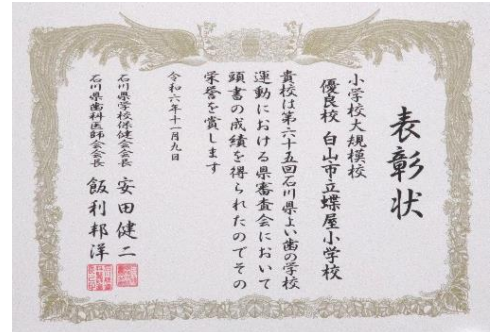 表彰状
小学校大規模校
優良校 白山市立蝶屋小学校
貴校は第六十五回石川県よい歯の学校
運動における県審査会において
頭書の成績を得られたのでその
栄誉を賞します
令和六年十一月九日
石川県学校保健会会長 安田健二
石川県歯科医師会会長 飯利邦洋